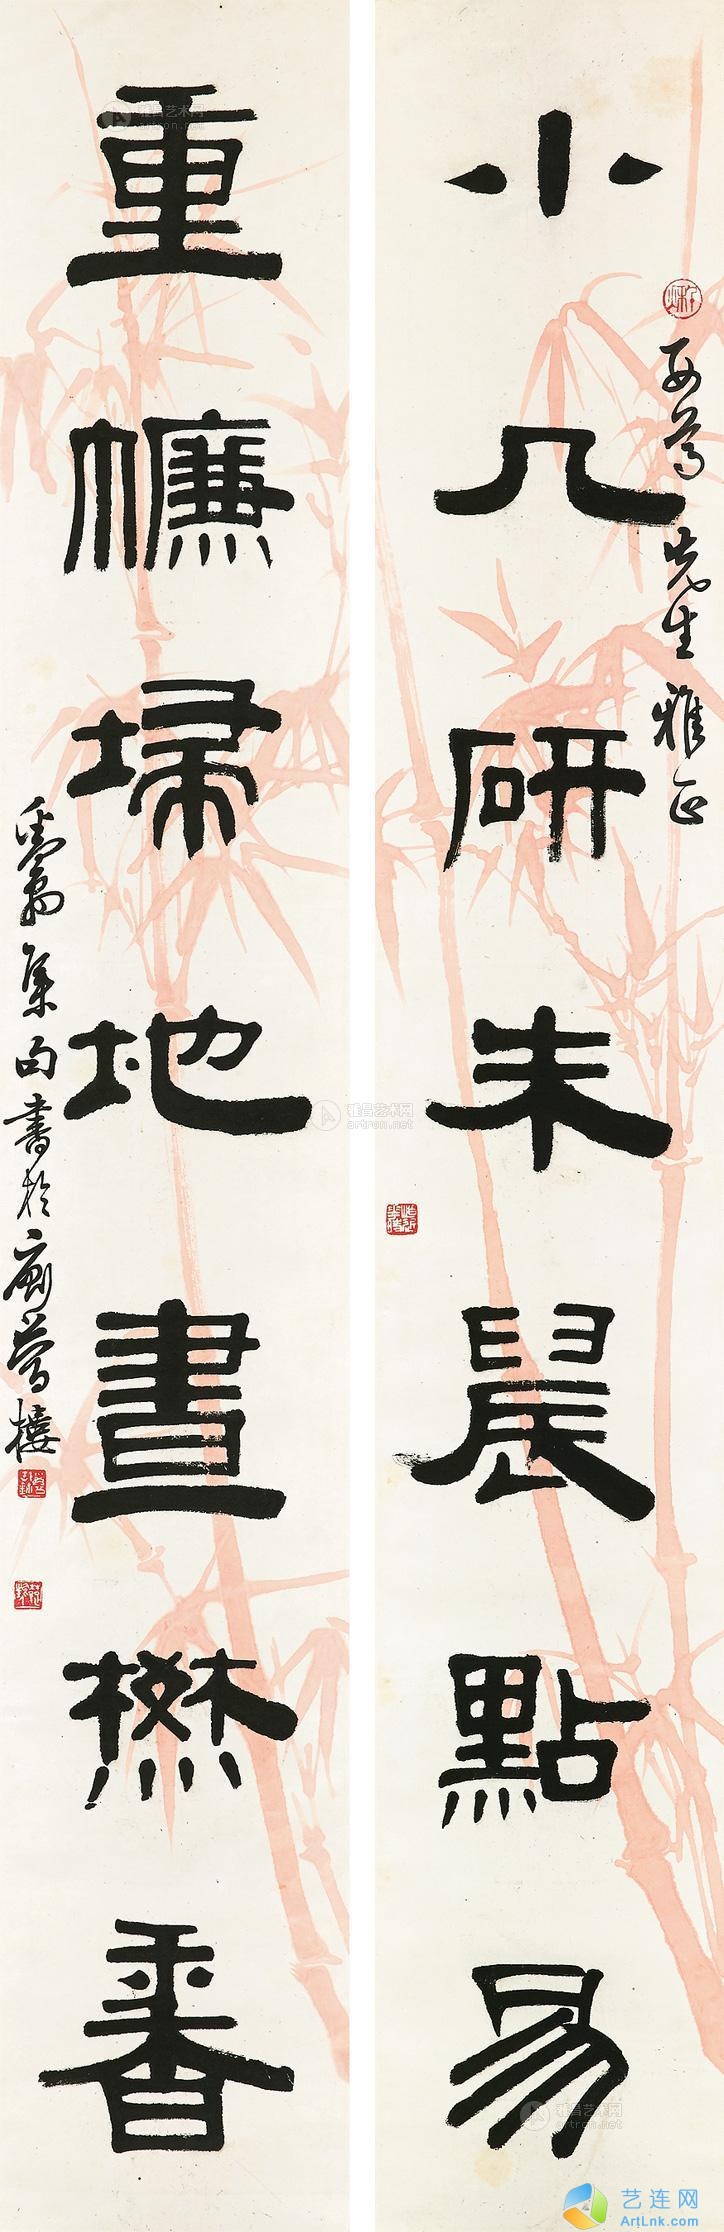 小几研朱晨點易
先生雅正
重㡘埽地晝㷊香
集句書於
樓
雅昌艺术网
artron.net
艺连网
ArtLnk.com